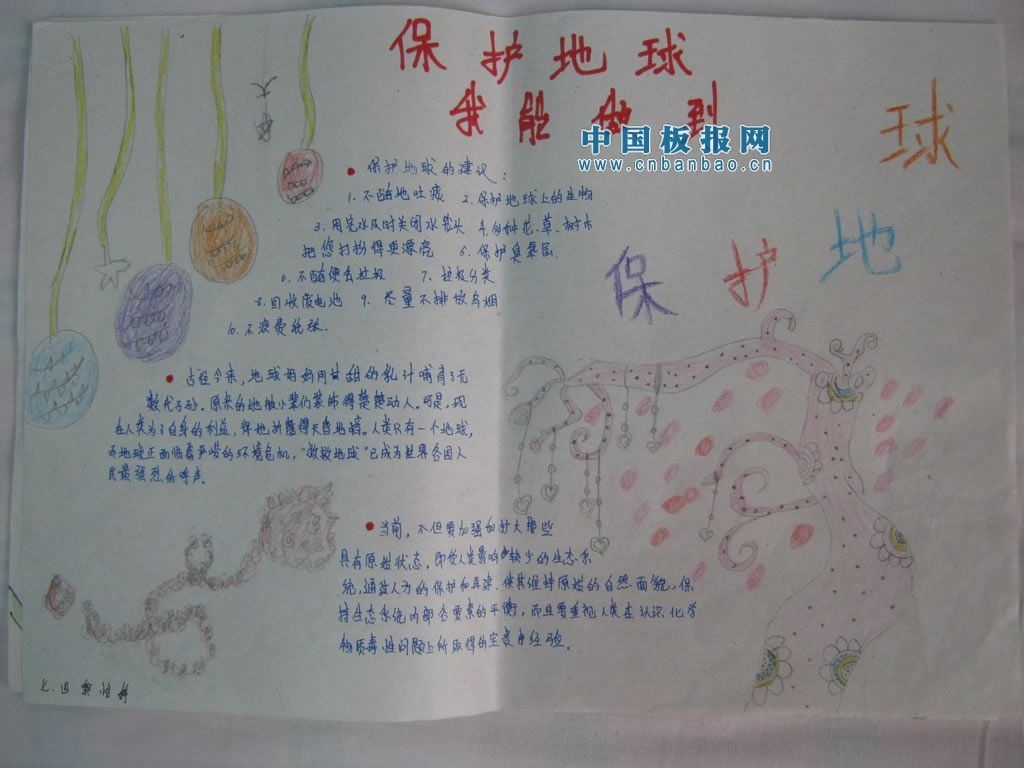 保护地球
我能做到
中国板报网
www.cnbanbao.cn
球
保护地
保护地球的建议:
1. 不随地吐痰 2. 保护地球上的生物
3. 用完水及时关闭水龙头 4. 多种花、草、树木
把您打扮得更漂亮 5. 保护臭氧层.
6. 不随便丢垃圾 7. 垃圾分类
8. 回收废电池 9. 尽量不排放乌烟
10. 不浪费纸张.
古往今来,地球妈妈用甘甜的乳汁哺育了无
数代子孙.原来的她被小辈们装饰得楚楚动人.可是,现
在人类为了自身的利益,将她折磨得天昏地暗.人类只有一个地球,
而地球正面临着严峻的环境危机,“救救地球”已成为世界各国人
民最强烈的呼声.
当前,不但要加强和扩大那些
具有原始状态,即受人类影响较少的生态系
统,通过人为的保护和再建,使其维持原始的自然面貌,保
持生态系统内部各要素的平衡,而且要重视人类在认识化学
物质毒性问题上所取得的宝贵中经验。